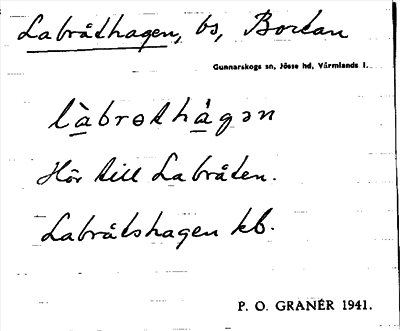 Labråthagen, bs, Bortan
Gunnarskogs sn, Jösse hd, Värmlands l.
làbrɵthágən
Hör till Labråten.
Labråtshagen kb.
P. O. GRANÉR 1941.